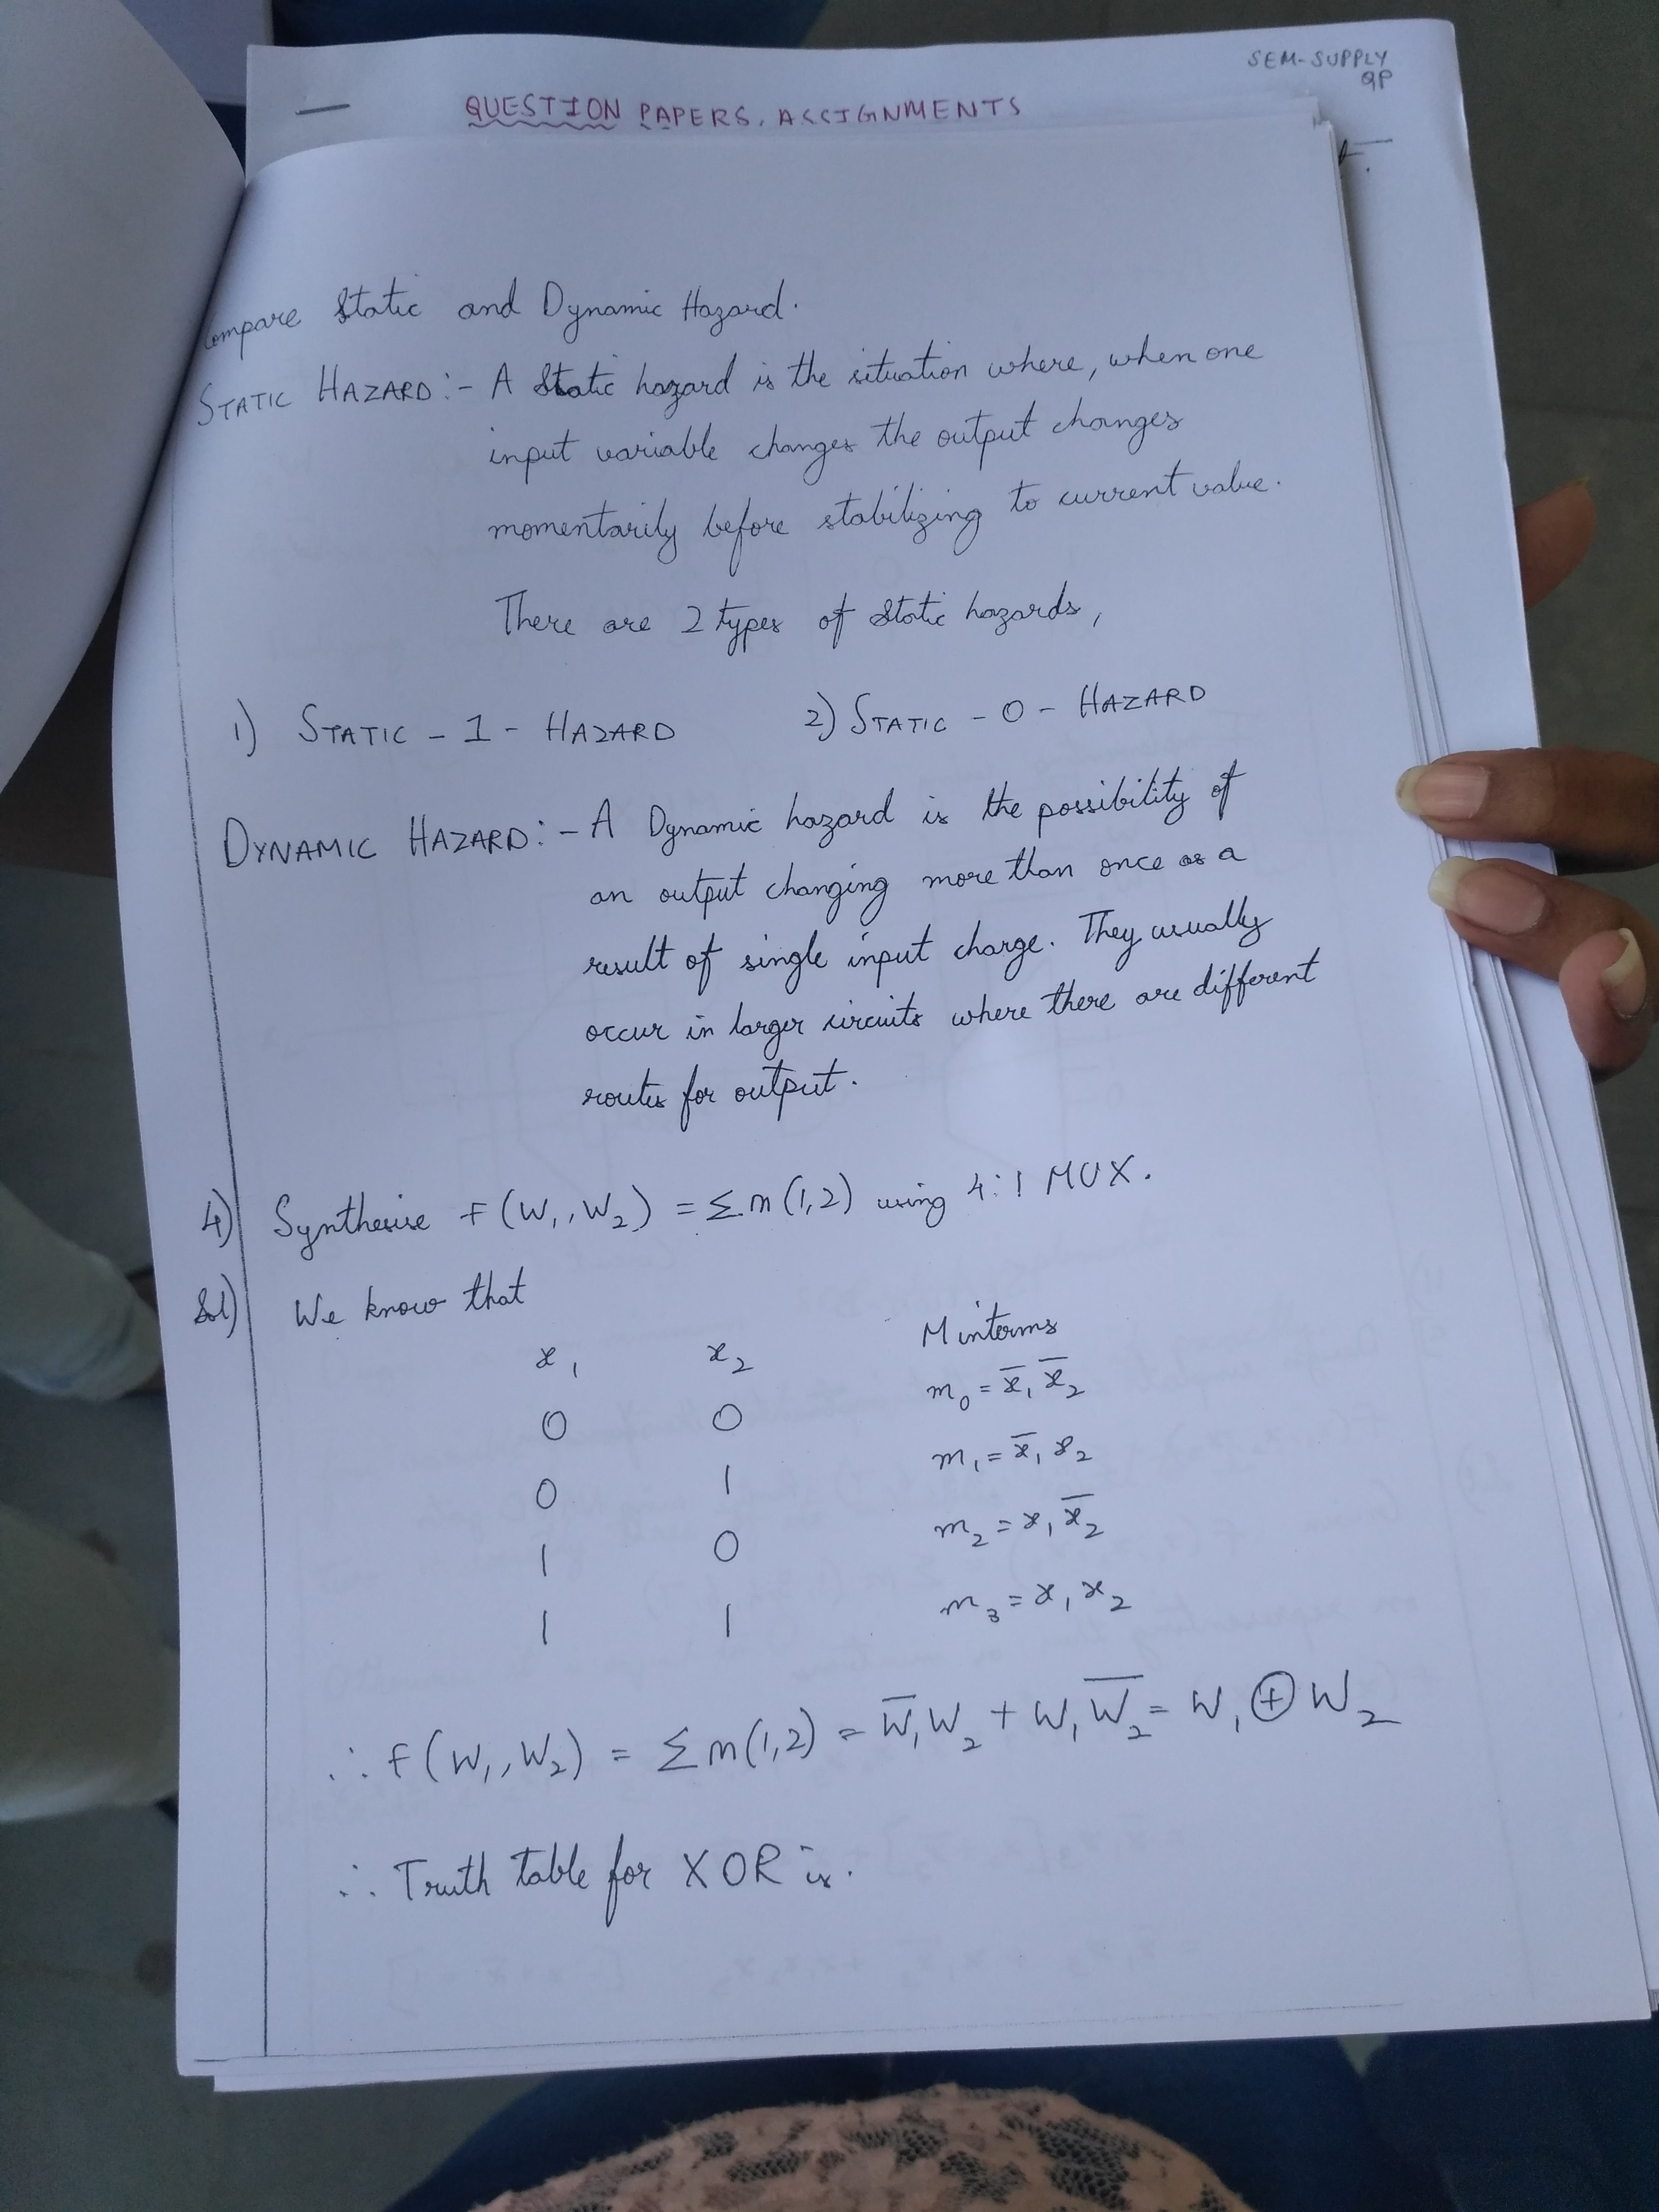 SEM-SUPPLY
QP
QUESTION PAPERS, ASSIGNMENTS
Compare Static and Dynamic Hazard.
STATIC HAZARD:- A Static hazard is the situation where, when one
input variable changes the output changes
momentarily before stabilizing to current value.
There are 2 types of static hazards,
1) STATIC - 1 - HAZARD 2) STATIC - 0 - HAZARD
DYNAMIC HAZARD:- A Dynamic hazard is the possibility of
an output changing more than once as a
result of single input change. They usually
occur in larger circuits where there are different
routes for output.
4) Synthesise f(W₁, W₂) = Σm(1,2) using 4:1 MUX.
Sol) We know that
x₁ x₂ Minterms
0 0 m₀ = x̅₁ x̅₂
0 1 m₁ = x̅₁ x₂
1 0 m₂ = x₁ x̅₂
1 1 m₃ = x₁ x₂
∴ f(W₁, W₂) = Σm(1,2) = W̅₁W₂ + W₁W̅₂ = W₁ ⊕ W₂
∴ Truth table for XOR is.